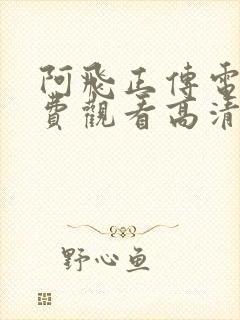 阿飛正傳電
費觀看高清
野心鱼